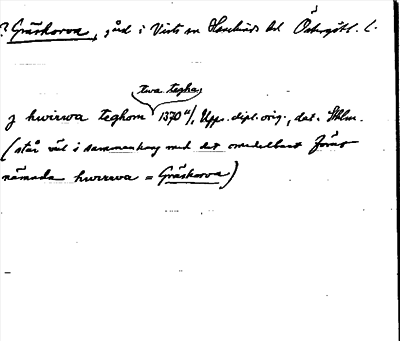 ? Gräskorva, gård i Vists sn Hanekinds hd Östergötl. l.
twa tegha
j hwirrwa teghom 1370 4/1 Upps. dipl. orig., dat. Sthlm.
(står väl i sammanhang med det omedelbart förut
nämnda hwirrva = Gräskorva)